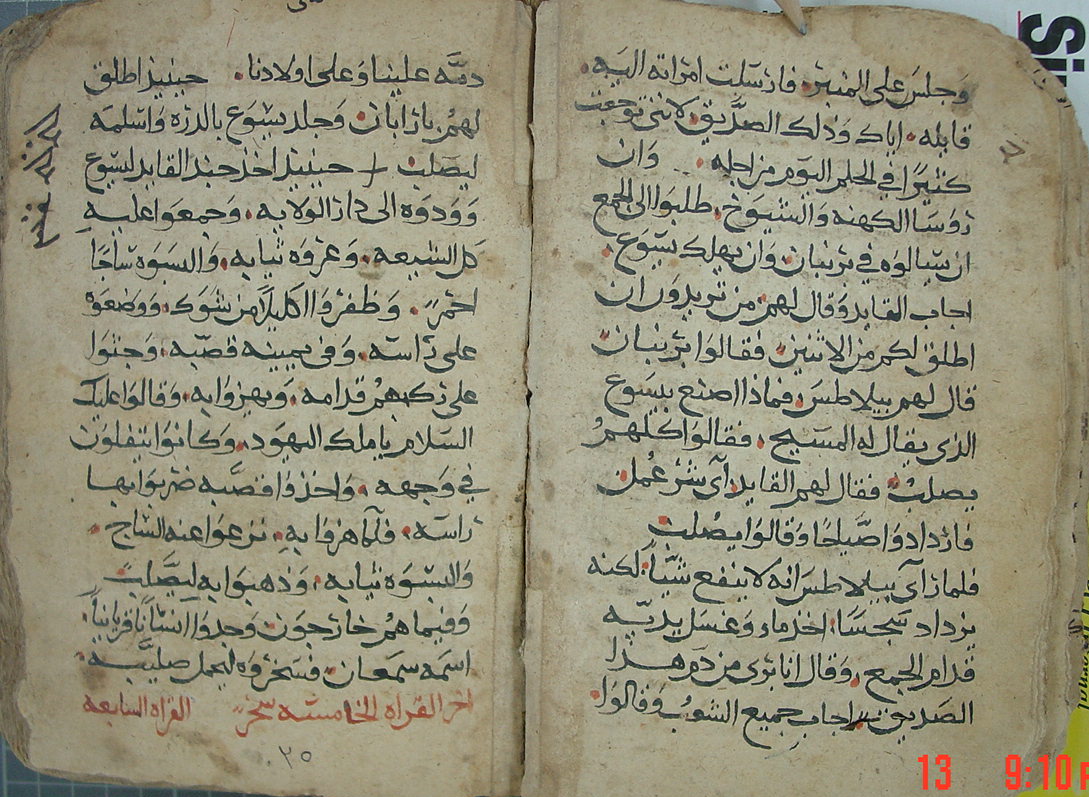 وجلس على المنبر. فارسلت امراته اليه.
قابله. اياك وذلك الصديق. لانني توجعت
كثيرا في الحلم اليوم من اجله. وان
روسا الكهنه والشيوخ. طلبوا الى الجمع
ان يسالوه في برنبان. وان يهلك يسوع.
اجاب القايد وقال لهم. من تريدون ان
اطلق لكم من الاثنين. فقالوا برنبان
قال لهم بيلاطس. فماذا اصنع بيسوع
الذى يقال له المسيح. فقالوا كلهم
يصلب. فقال لهم القايد. اى شر عمل
فازدادوا صياحا وقالوا يصلب
فلما راى بيلاطس انه لا ينفع شيا. لكنه
يزداد سجسا. اخذ ماء وغسل يديه
قدام الجمع. وقال انا برى من دم هذا
الصديق. اجاب جميع الشعب وقالوا.
دمه علينا وعلى اولادنا. حينيذ اطلق
لهم بارابان. وجلد يسوع بالدره واسلمه
ليصلب. حينيذ اخذ جند القايد ليسوع
وودوه الى دار الولايه. وجمعوا عليه
كل الشيعه. وعروه ثيابه. والبسوه ساحا
احمر. وظفروا اكليلا من شوك. ووضعوه
على راسه. وفى يمينه قصبه. وجثوا
على ركبهم قدامه. ويهزوا به. وقالوا عليك
السلام ياملك اليهود. وكانوا يتفلون
في وجهه. واخذوا قصبه ضربوا بها
راسه. فلما هزوا به. نزعوا عنه الساح.
والبسوه ثيابه. وذهبوا به ليصلب
وفيما هم خارجون. وجدوا انسانا قريانيا.
اسمه سمعان. فسخروه ليحمل صليبه.
اخر القراه الخامسه سحر القراه السابعه
٢٥
13 9:10